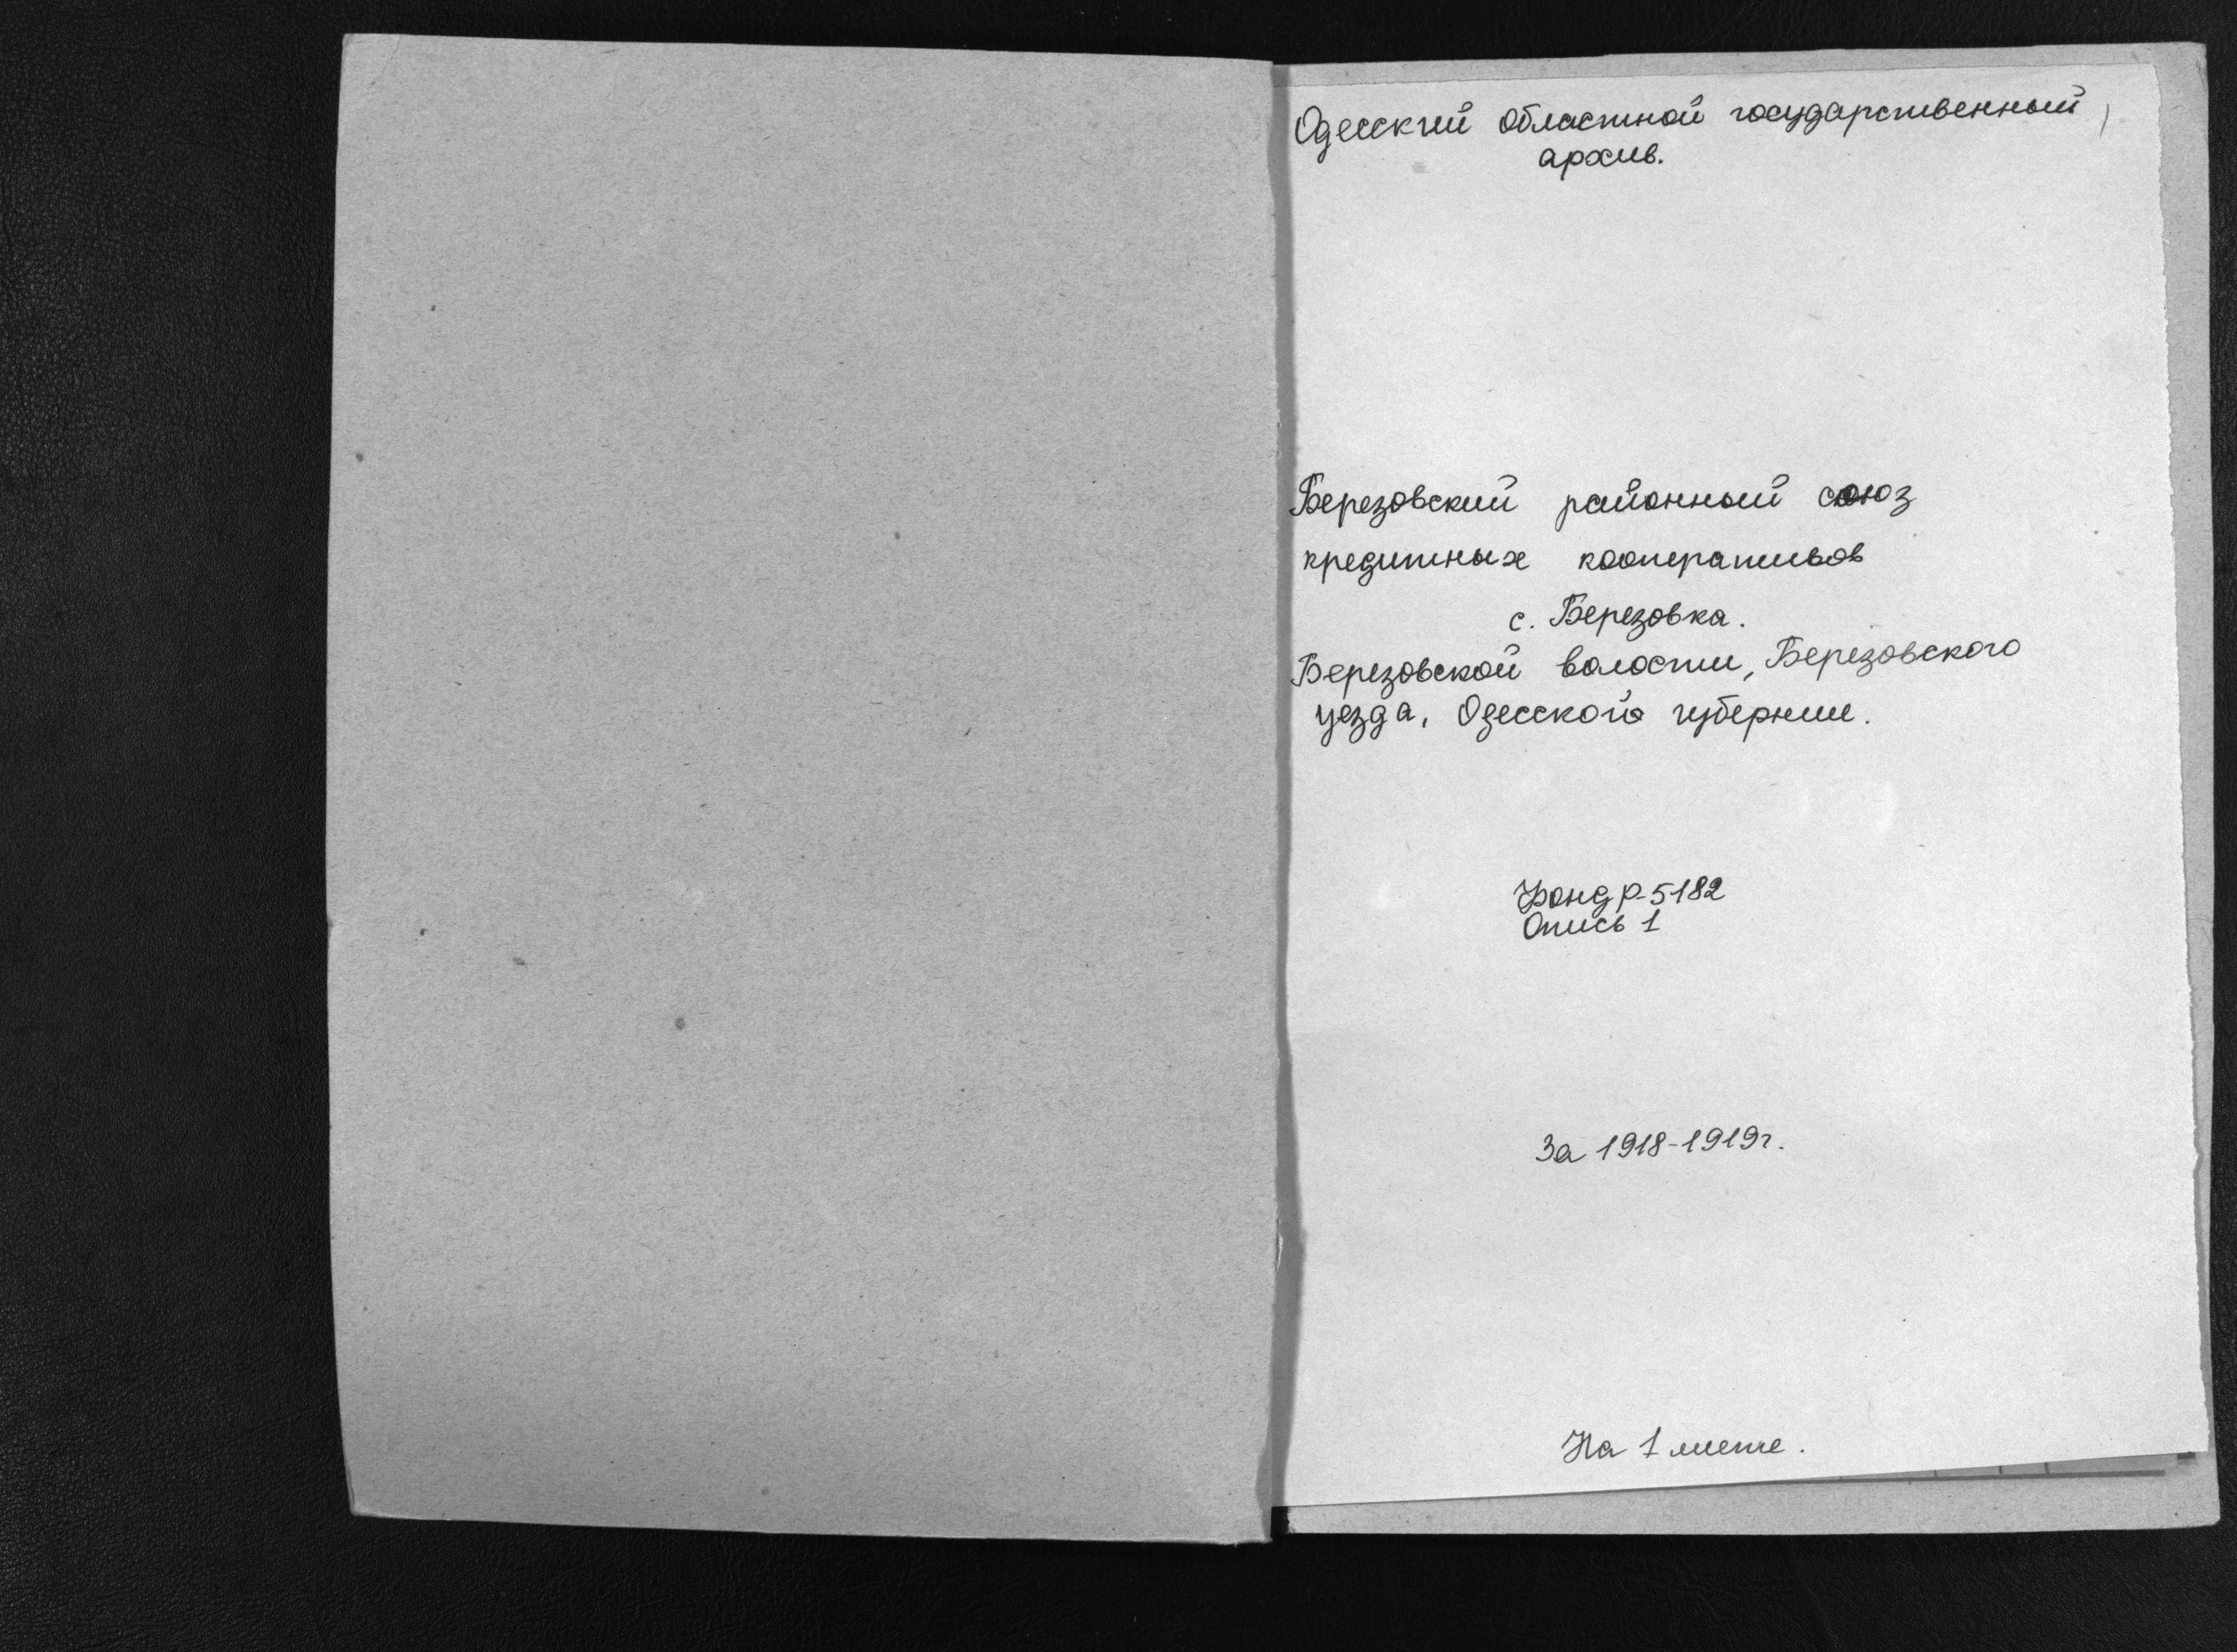 Одесский областной государственный
архив.
Березовский районный союз
кредитных кооперативов
с. Березовка.
Березовской волости, Березовского
уезда, Одесской губернии.
Фонд Р-5182
Опись 1
За 1918-1919г.
На 1 листе.